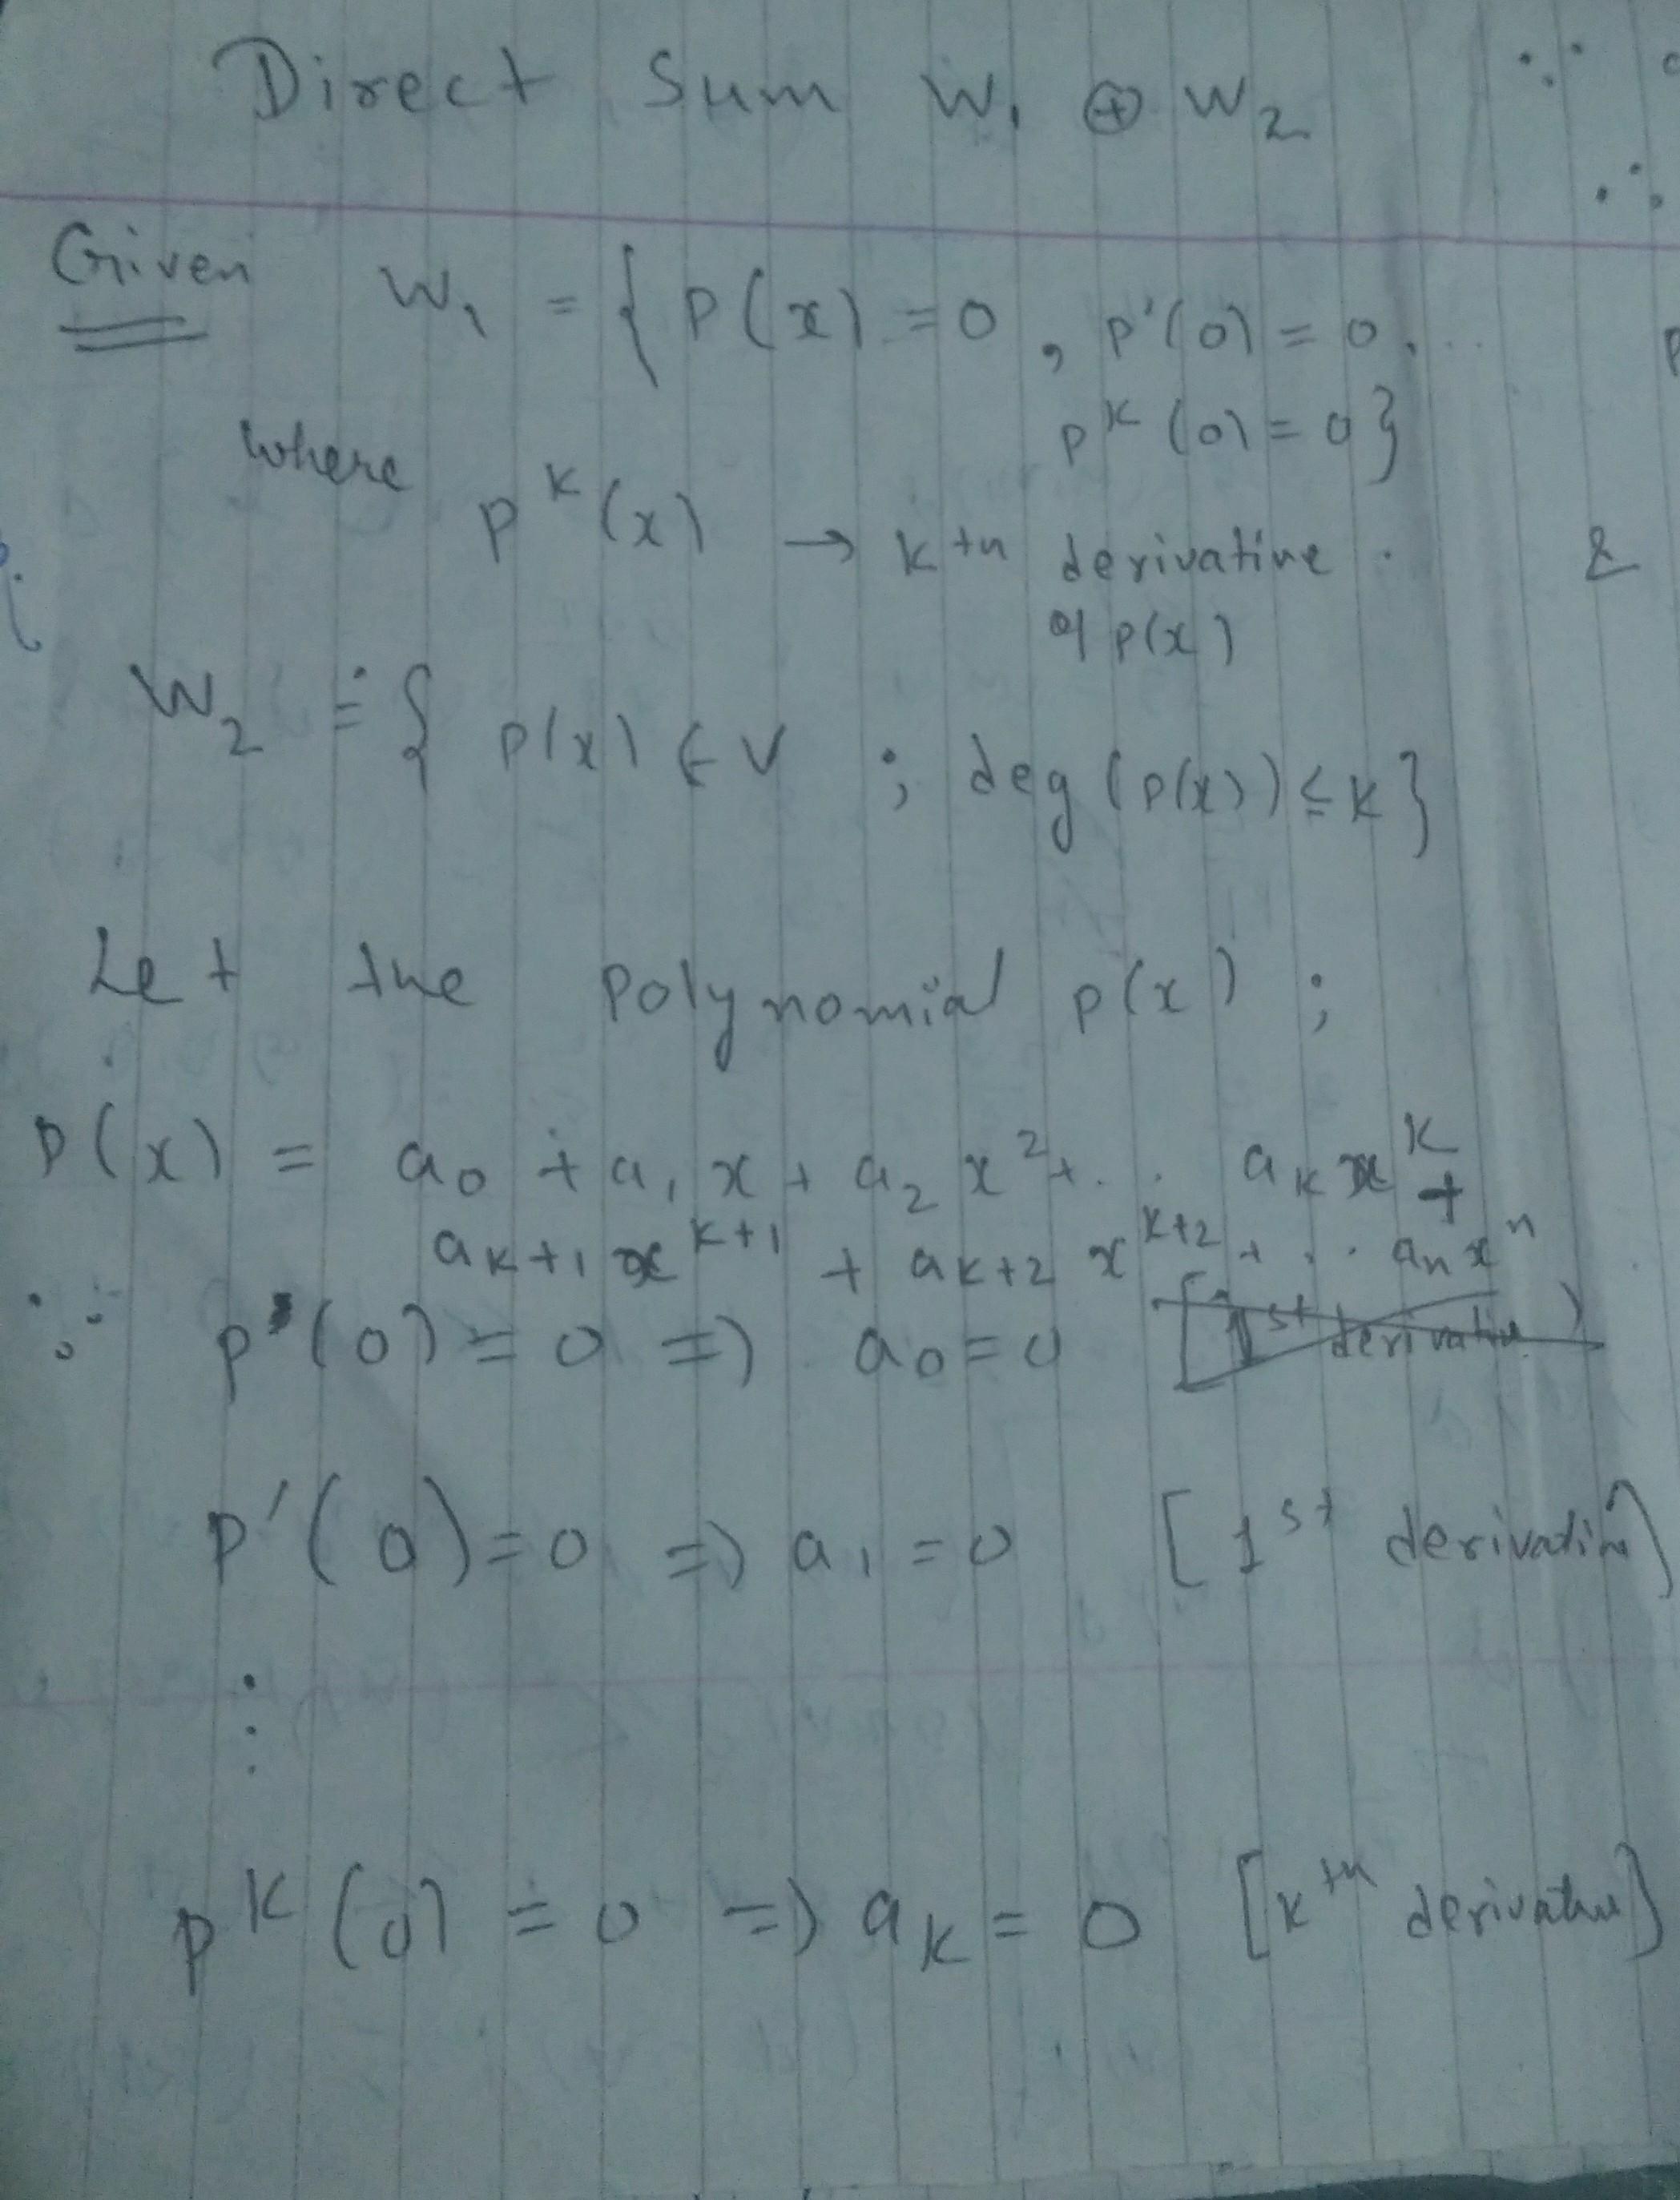 Direct Sum W₁ ⊕ W₂
Given W₁ = { P(x) = 0, p'(0) = 0, ...
pᴷ(0) = 0}
where pᴷ(x) → kth derivative.
of p(x)
W₂ = { p(x) ∈ V ; deg (p(x)) ≤ k }
Let the polynomial p(x) ;
P(x) = a₀ + a₁x + a₂x² + .. aₖxᴷ +
aₖ₊₁xᵏ⁺¹ + aₖ₊₂xᵏ⁺² + ... aₙxⁿ
∵ p(0) = 0 ⇒ a₀ = 0 [1st derivative]
p'(0) = 0 ⇒ a₁ = 0 [1st derivative]
⋮
pᴷ(0) = 0 ⇒ aₖ = 0 [kth derivative]
∵
∴
&